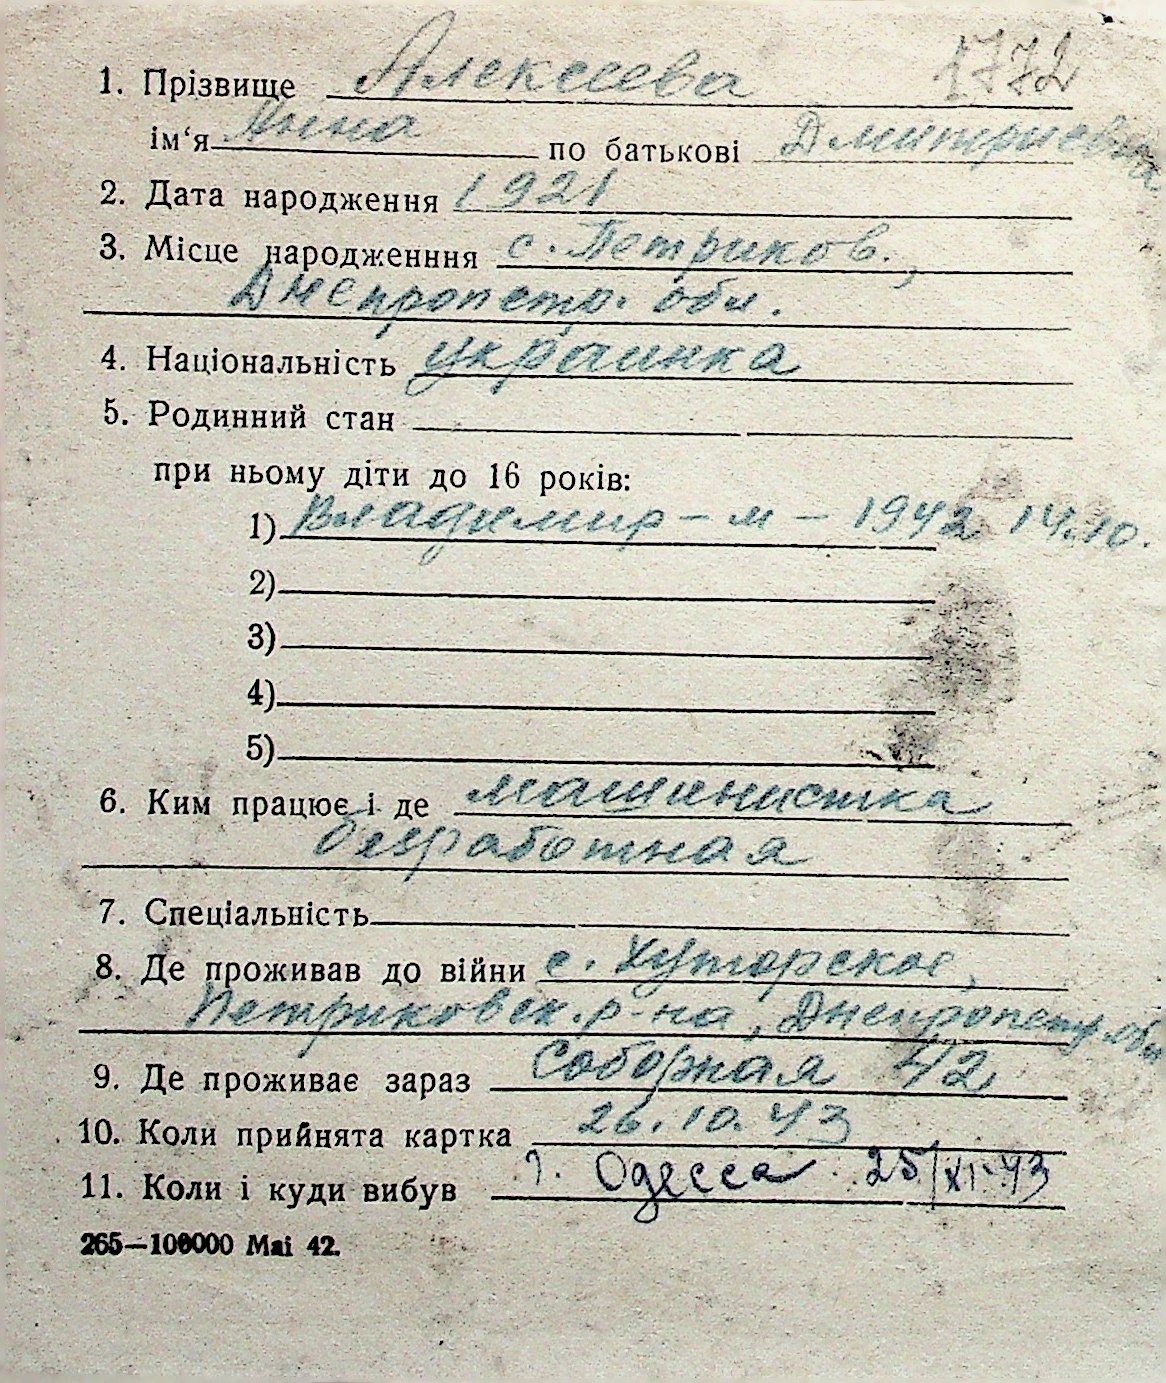 1772
1. Прізвище Алексеева
ім‘я Анна по батькові Дмитриевна
2. Дата народження 1921
3. Місце народженння с. Петриков.,
Днепропетр. обл.
4. Національність украинка
5. Родинний стан
при ньому діти до 16 років:
1) Владимир – м – 1942 14.10.
2)
3)
4)
5)
6. Ким працює і де машинистка
безработная
7. Спеціальність
8. Де проживав до війни с. Хуторское,
Петриковск. р-на, Днепропетр. обл
9. Де проживає зараз Соборная 42
10. Коли прийнята картка 26.10.43
11. Коли і куди вибув г. Одесса 25/XI-43
265—100000 Mai 42.